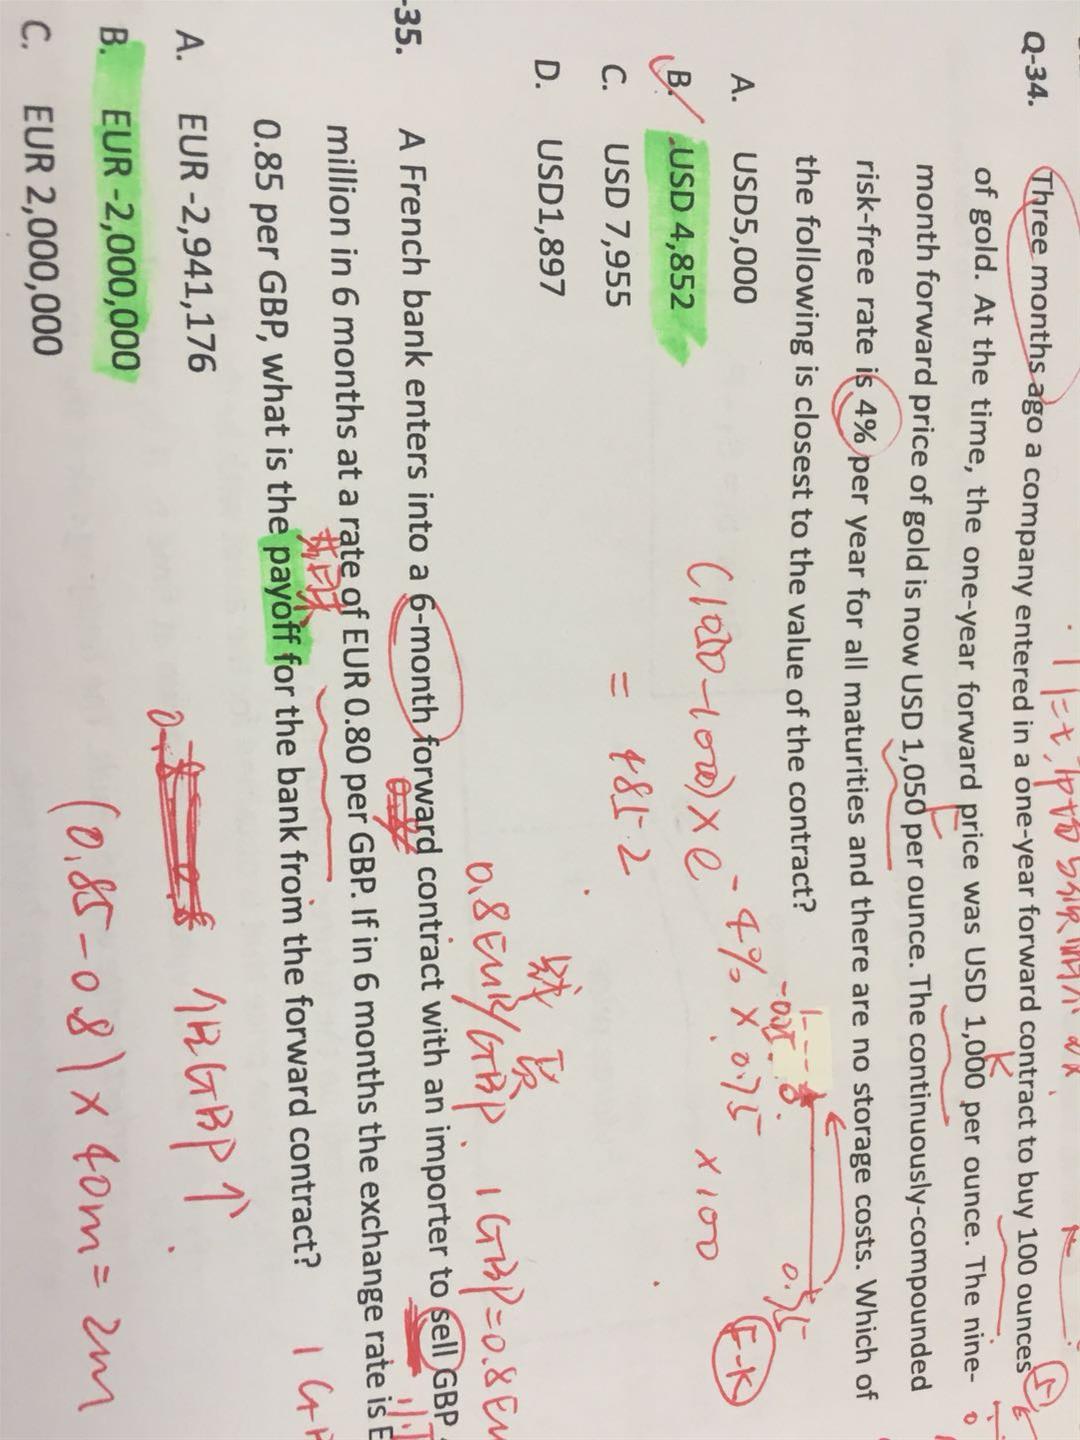 Q-34. Three months ago a company entered in a one-year forward contract to buy 100 ounces
of gold. At the time, the one-year forward price was USD 1,000 per ounce. The nine-
month forward price of gold is now USD 1,050 per ounce. The continuously-compounded
risk-free rate is 4% per year for all maturities and there are no storage costs. Which of
the following is closest to the value of the contract?
K
F
1
0.75
A. USD5,000
B. USD 4,852
C. USD 7,955
D. USD1,897
-4% × 0.75
× 100
F-K
= 485.2
0.8EUR/GBP. 1GBP=0.8EU
-35. A French bank enters into a 6-month forward contract with an importer to sell GBP
million in 6 months at a rate of EUR 0.80 per GBP. If in 6 months the exchange rate is E
0.85 per GBP, what is the payoff for the bank from the forward contract?
A. EUR -2,941,176
B. EUR -2,000,000
C. EUR 2,000,000
GBP↑
(0.85-0.8) × 40m = 2m